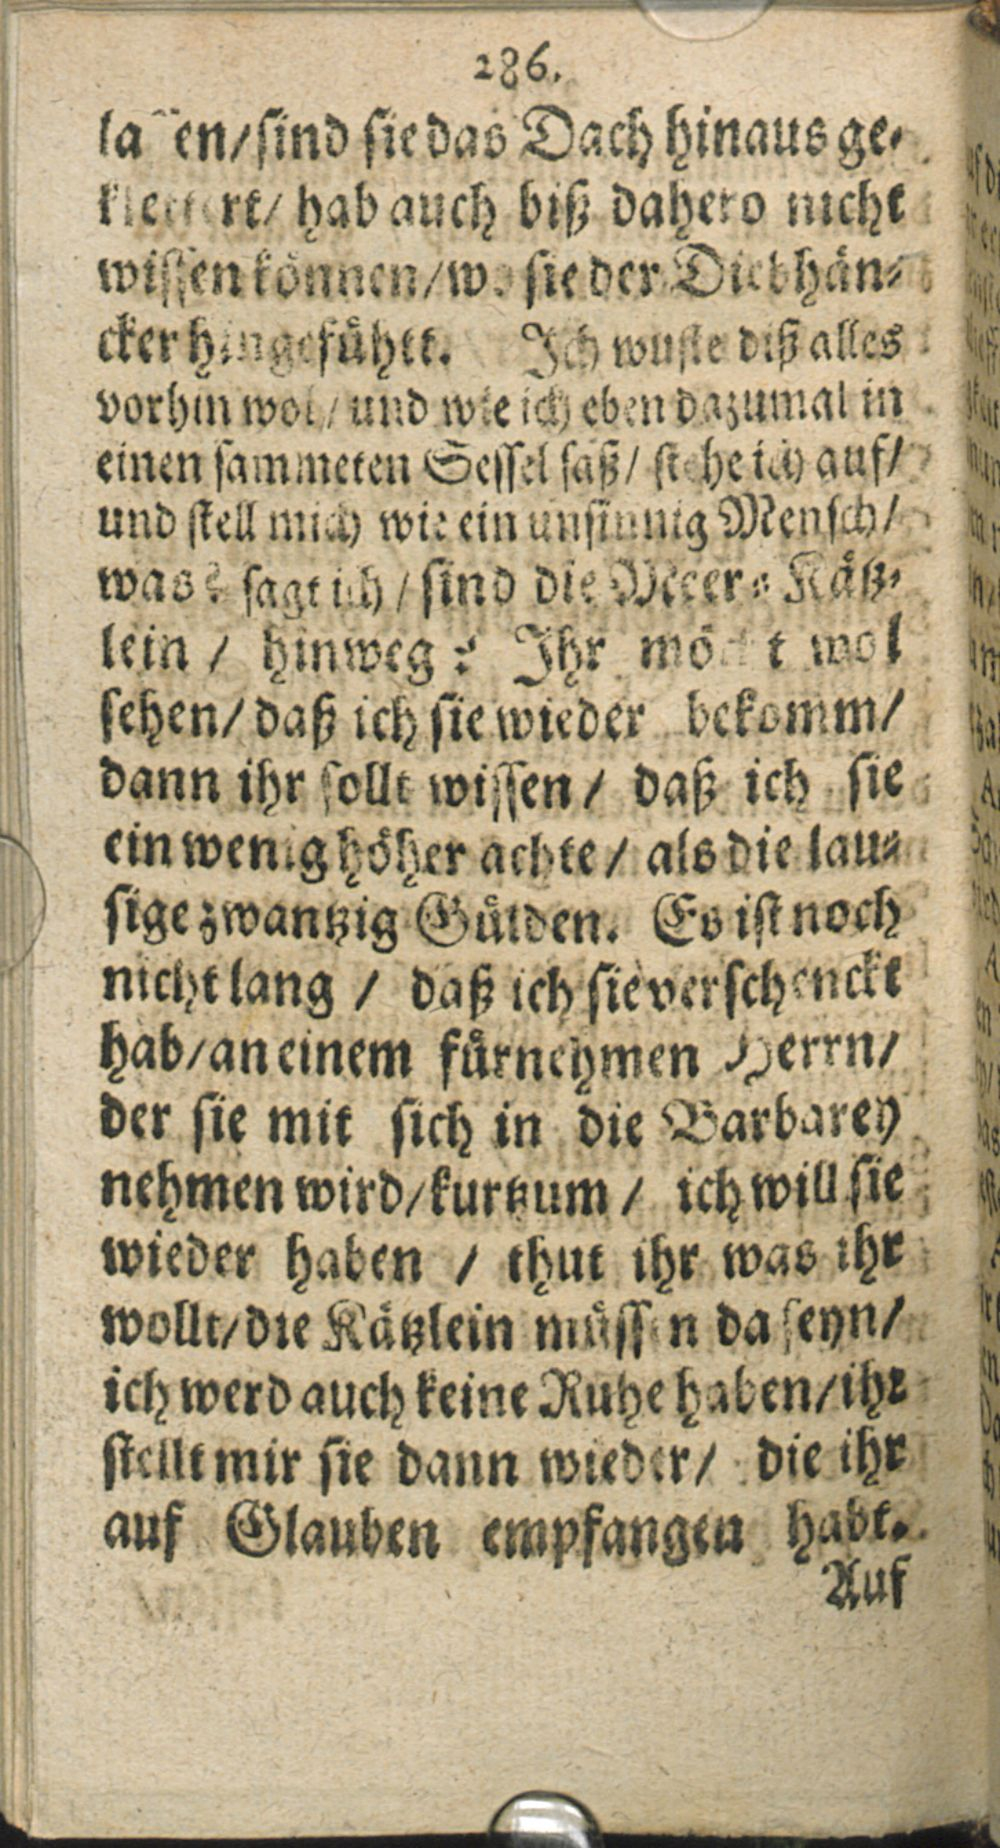 286.
lassen/sind sie das Dach hinaus ge-
klettert/ hab auch biß dahero nicht
wissen können/wo sie der Diebhän-
cker hingeführt. Ich wuste diß alles
vorhin wol/ und wie ich eben dazumal in
einen sammeten Sessel saß/ stehe ich auf/
und stell mich wie ein unsinnig Mensch/
was? sagt ich / sind die Meer-Kätz-
lein / hinweg? Ihr möcht wol
sehen/ daß ich sie wieder bekomm/
dann ihr sollt wissen/ daß ich sie
ein wenig höher achte/ als die lau-
sige zwantzig Gülden. Es ist noch
nicht lang / daß ich sie verschenckt
hab/an einem fürnehmen Herrn/
der sie mit sich in die Barbarey
nehmen wird/kurtzum / ich will sie
wieder haben / thut ihr was ihr
wollt/die Kätzlein müssen da seyn/
ich werd auch keine Ruhe haben/ihr
stellt mir sie dann wieder/ die ihr
auf Glauben empfangen habt.
Auf